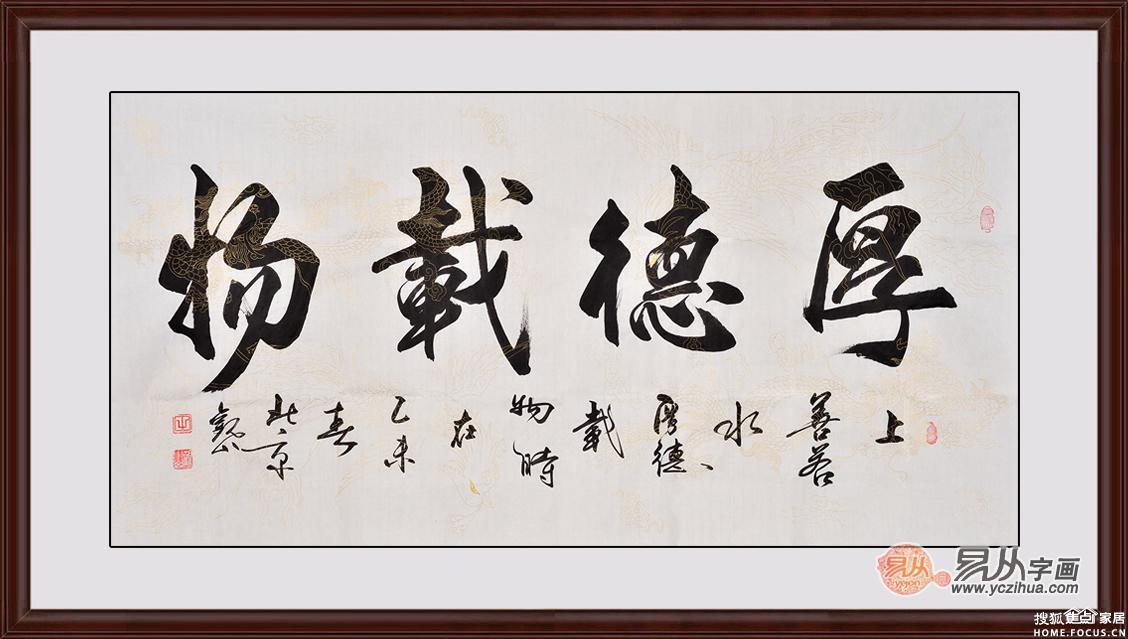 厚德载物
上善若水厚德载物时在乙未春北京
易从
yejon
易从字画
www.yczihua.com
搜狐焦点家居
HOME.FOCUS.CN